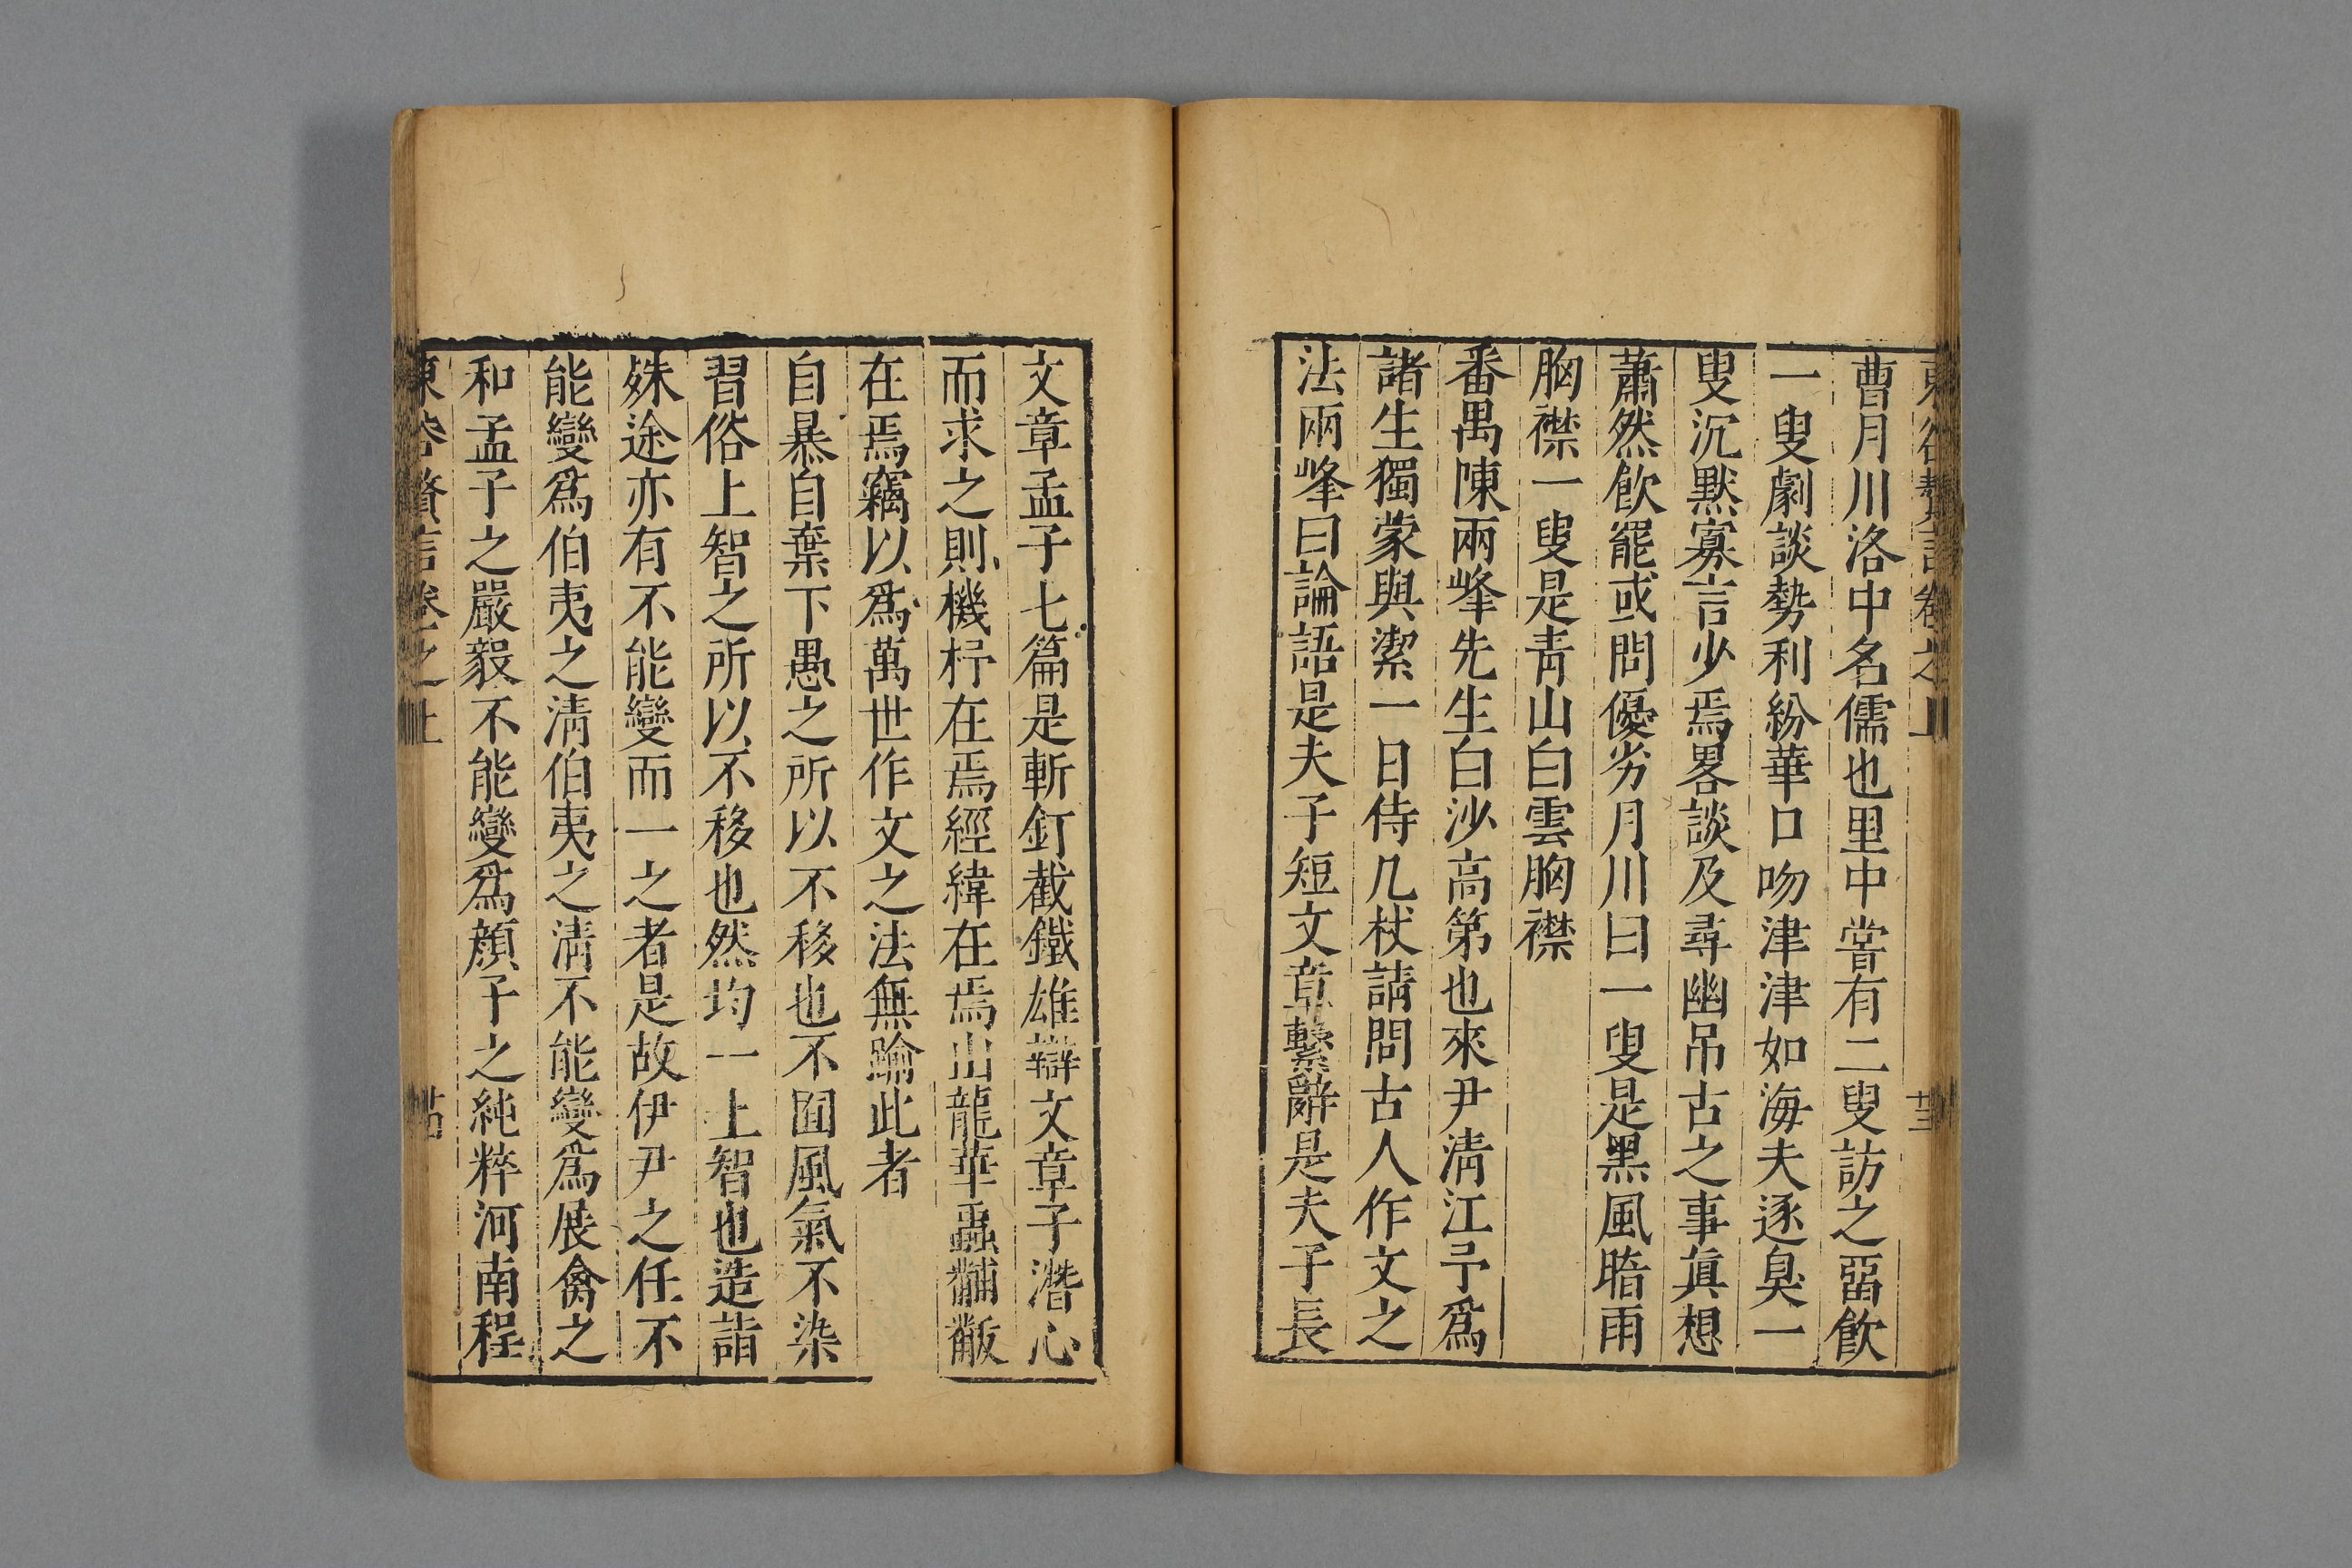 東谷贅言卷之上 廿三
曹月川洛中名儒也里中嘗有二叟訪之畱飲
一叟劇談勢利紛華口吻津津如海夫逐臭一
叟沉默寡言少焉畧談及尋幽吊古之事眞想
蕭然飮罷或問優劣月川曰一叟是黑風暗雨
胸襟一叟是靑山白雲胸襟
番禺陳兩峰先生白沙高第也來尹淸江予爲
諸生獨蒙與潔一日侍几杖請問古人作文之
法兩峰曰論語是夫子短文章繫辭是夫子長
文章孟子七篇是斬釘截鐵雄辯文章子潛心
而求之則機杼在焉經緯在焉山龍華蟲黼黻
在焉竊以爲萬世作文之法無踰此者
自暴自棄下愚之所以不移也不囿風氣不染
習俗上智之所以不移也然均一上智也造詣
殊途亦有不能變而一之者是故伊尹之任不
能變爲伯夷之淸伯夷之淸不能變爲展禽之
和孟子之嚴毅不能變爲顏子之純粹河南程
東谷贅言卷之上 廿四